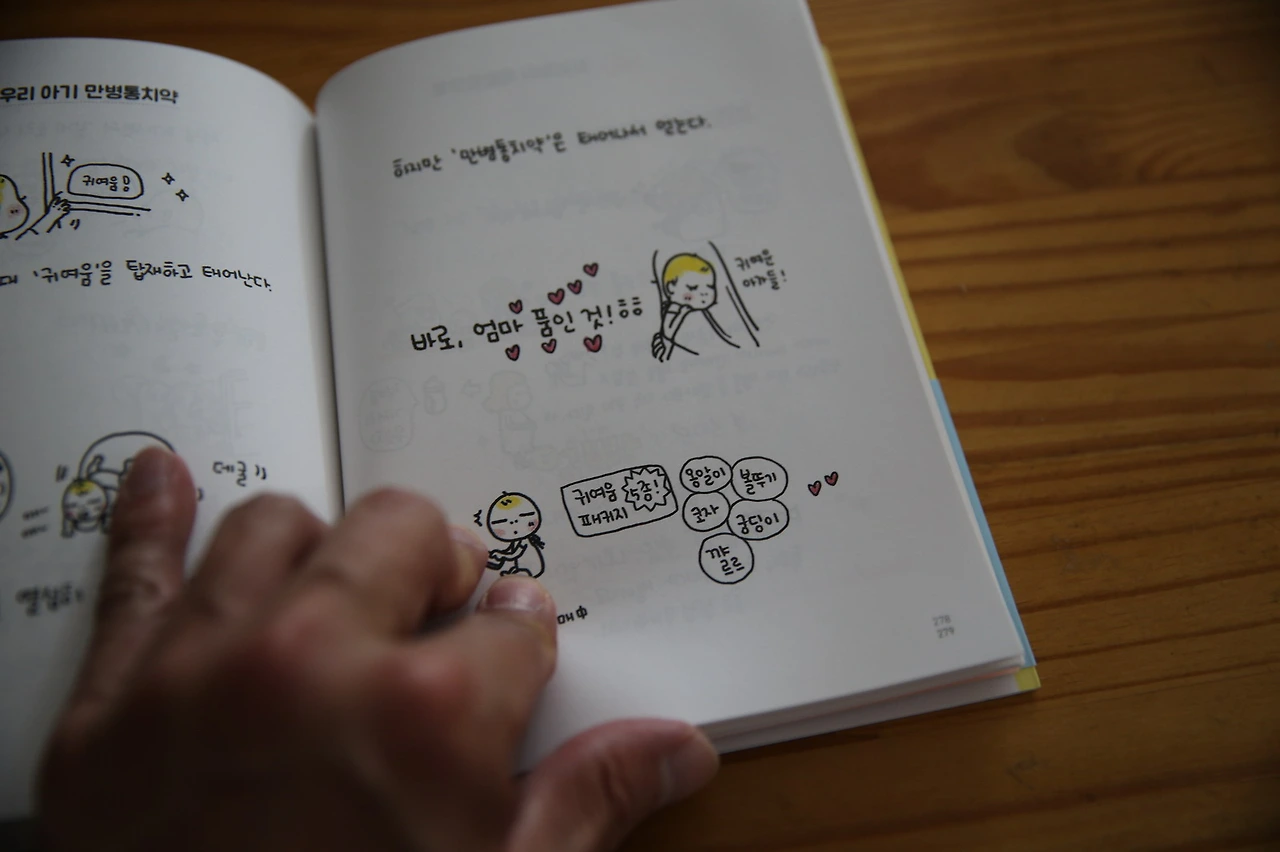 우리 아기 만병통치약
귀여움!
'귀여움'을 탑재하고 태어난다.
데굴))
열심히
하지만 '만병통치약'은 태어나서 얻는다.
바로, 엄마 품인 것! ㅎㅎ
귀여운
아가들!
귀여움 5종!
패키지
옹알이
볼뚜기
코자
궁딩이
꺄르르
매中
278
279